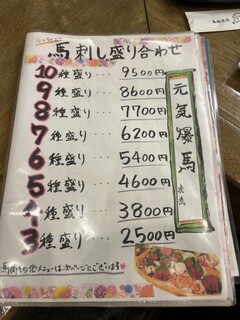 馬刺し盛り合わせ
10種盛り・・・9500円
9種盛り・・・8600円
8種盛り・・・7700円
7種盛り・・・6200円
6種盛り・・・5400円
5種盛り・・・4600円
4種盛り・・・3800円
3種盛り・・・2500円
元気爆馬
馬刺しの他メニューは次のページにございます